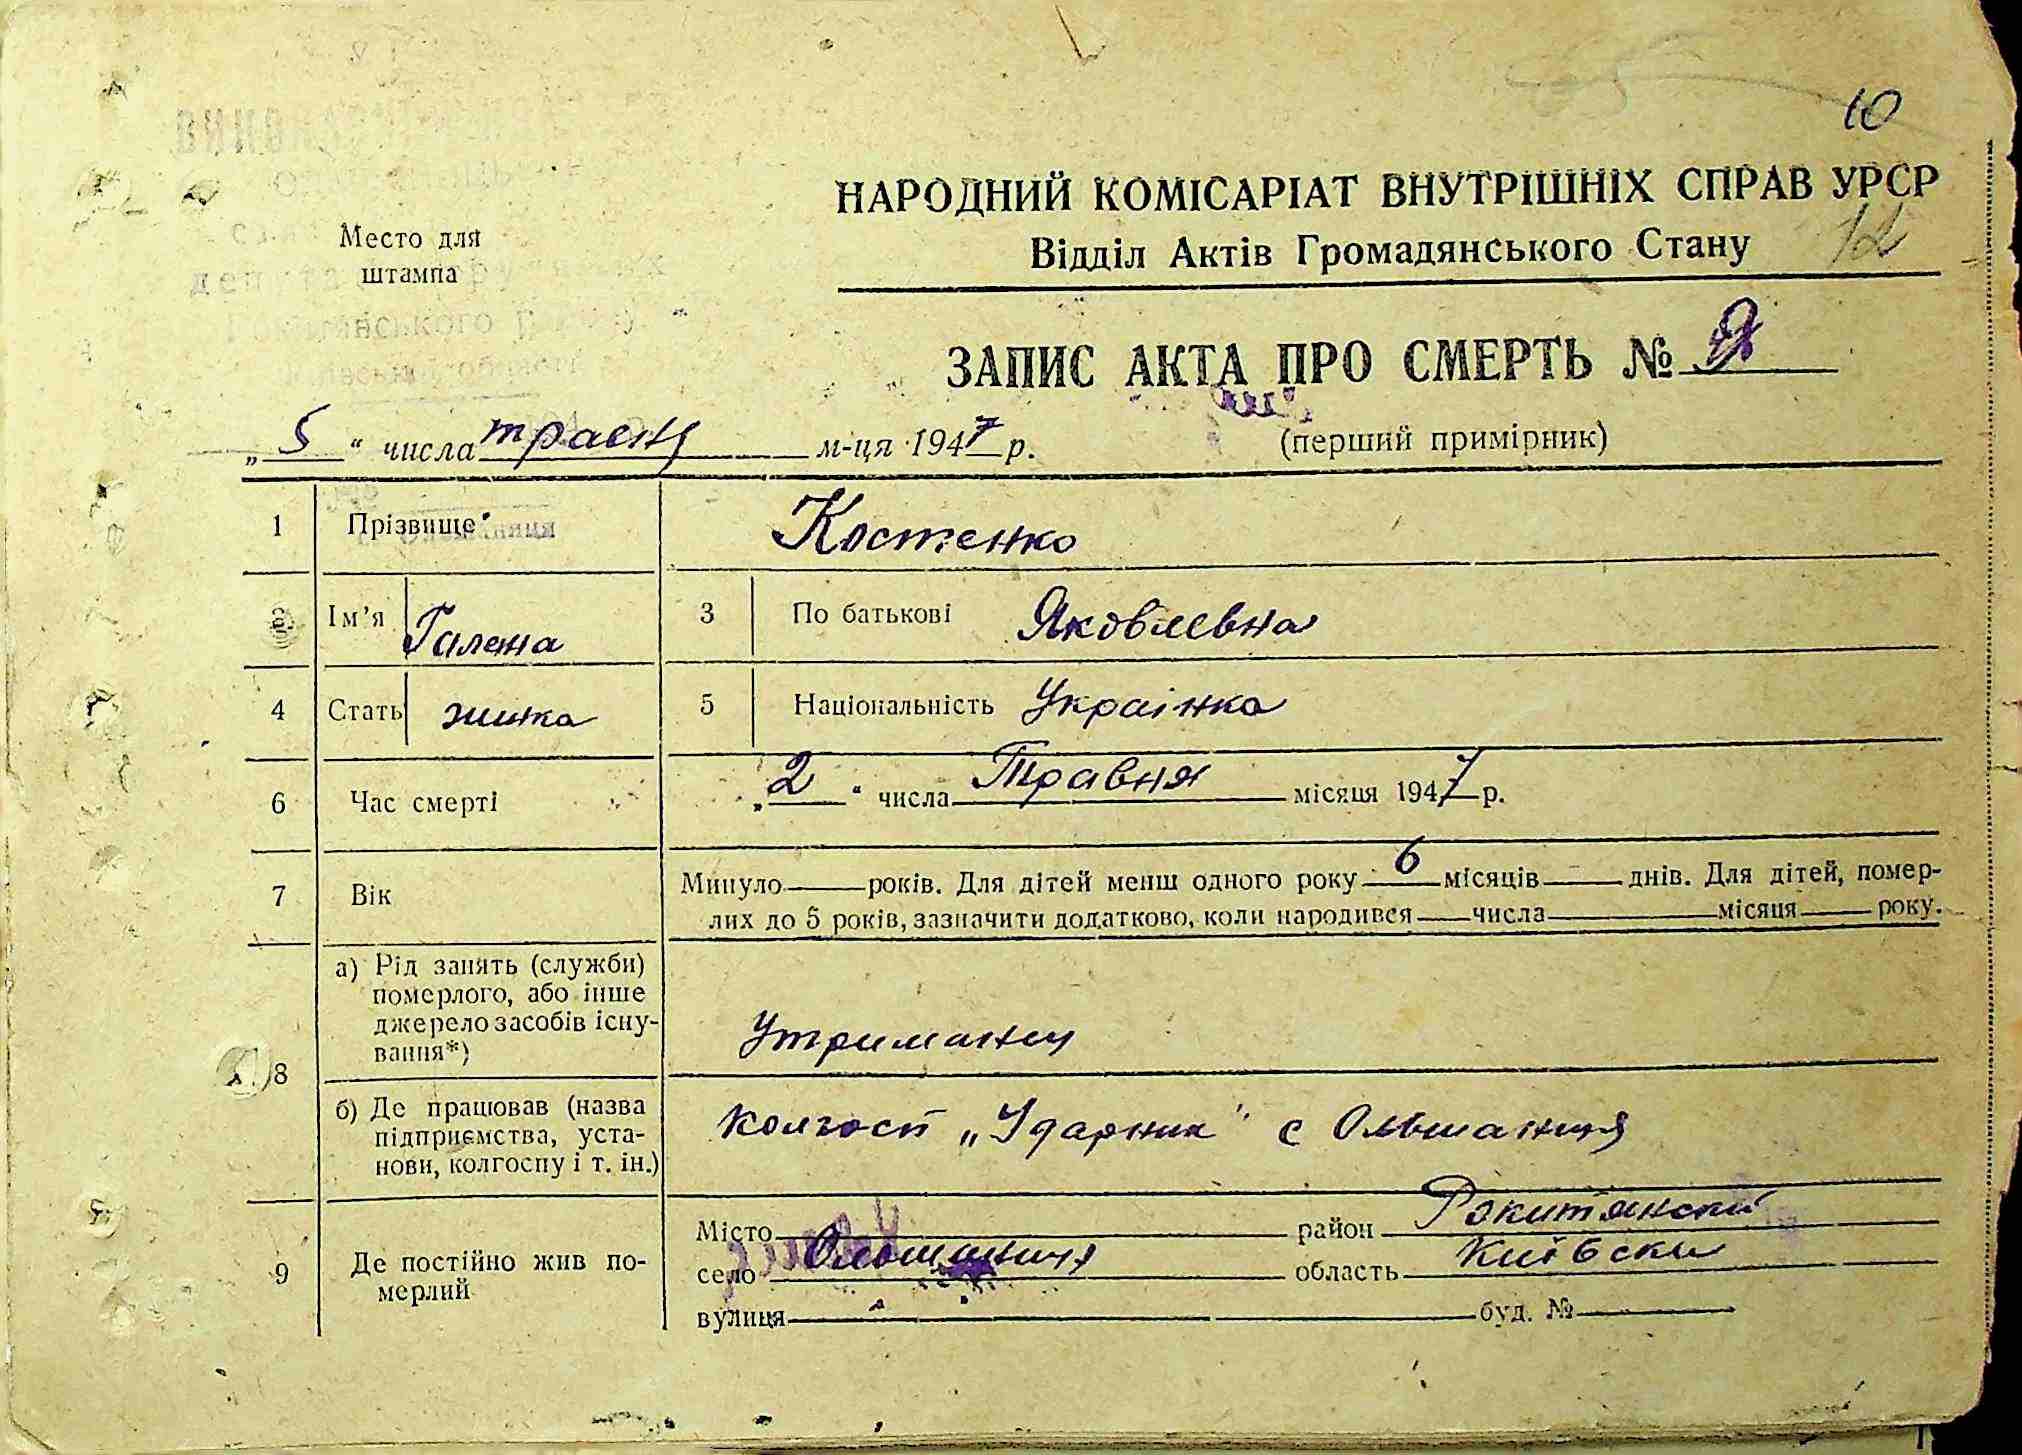 10
НАРОДНИЙ КОМІСАРІАТ ВНУТРІШНІХ СПРАВ УРСР
Место для штампа
Відділ Актів Громадянського Стану
12
ЗАПИС АКТА ПРО СМЕРТЬ №
„5“ числа травня м-ця 1947 р.
(перший примірник)
1 Прізвище Костенко
2 Ім’я Галена 3 По батькові Яковлевна
4 Стать жинка 5 Національність Українка
6 Час смерті „2“ числа Травня місяця 1947 р.
7 Вік Минуло років. Для дітей менш одного року 6 місяців днів. Для дітей, помер-
лих до 5 років, зазначити додатково, коли народився числа місяця року.
8 а) Рід занять (служби)
померлого, або інше
джерело засобів існу-
вання*)
Утриманец
б) Де працював (назва
підприємства, уста-
нови, колгоспу і т. ін.)
колгосп „Ударник“ с Ольшаниця
9 Де постійно жив по-
мерлий
Місто район Рокитянский
село Ольшаниця область Київски
вулиця буд. №